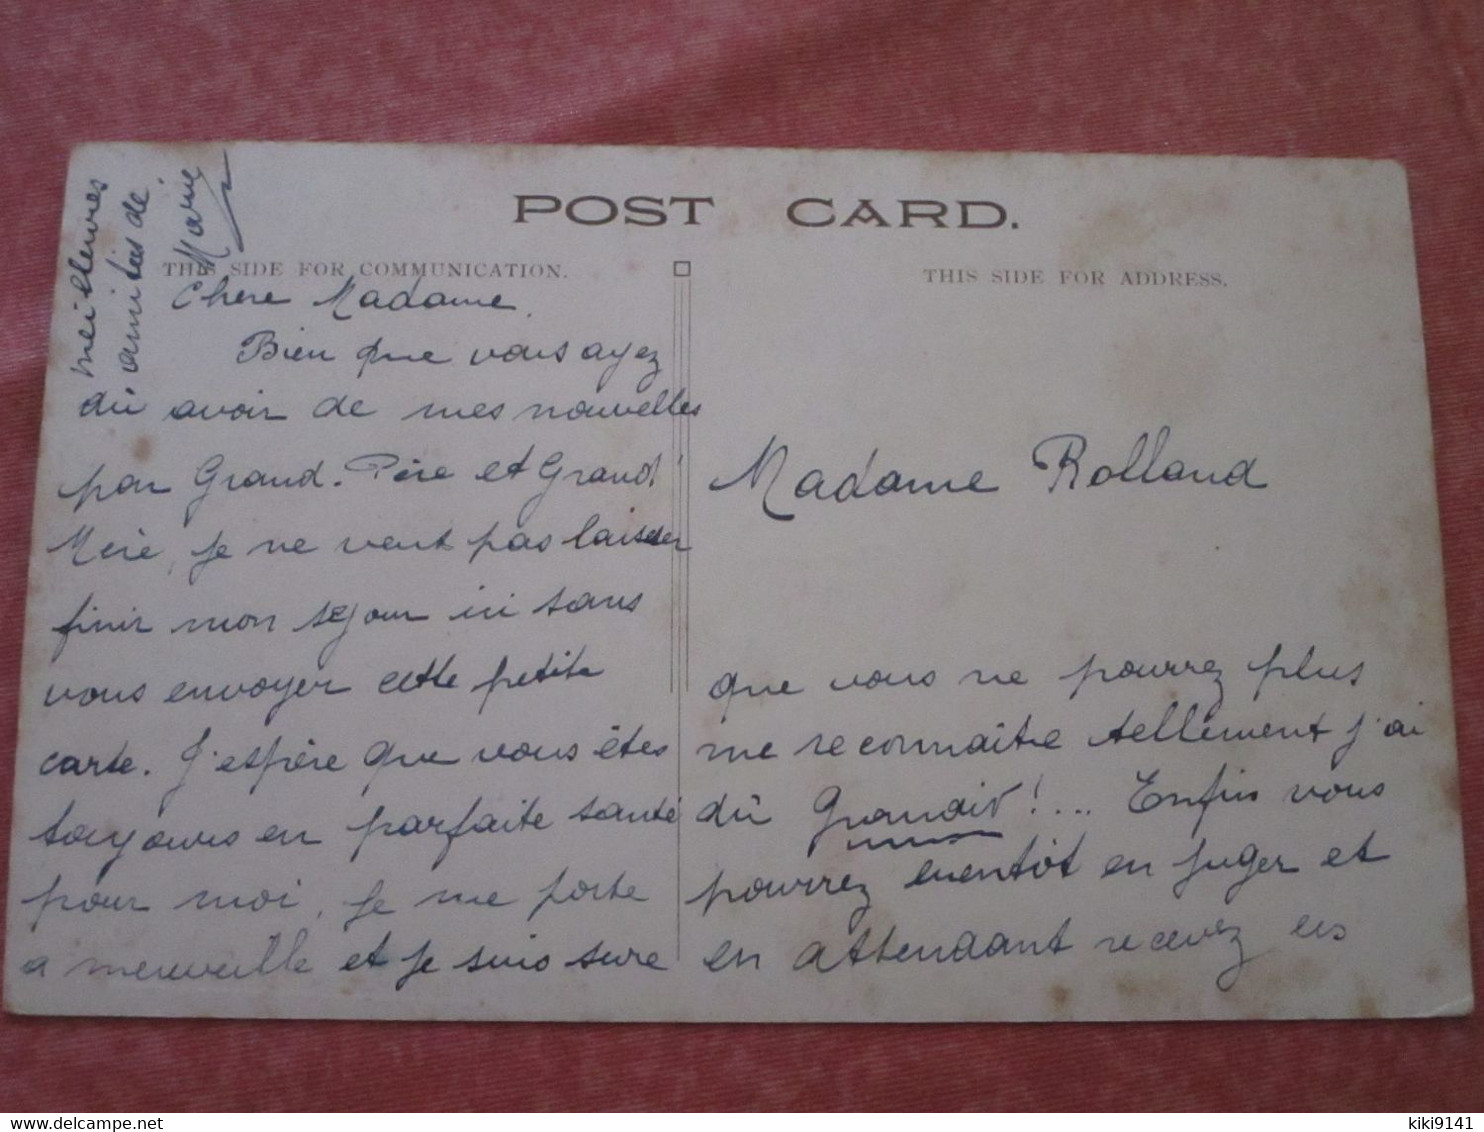 POST CARD.
THIS SIDE FOR COMMUNICATION.
THIS SIDE FOR ADDRESS.
Chere Madame,
Bien que vous ayez
dû avoir de mes nouvelles
par Grand-Père et Grand'
Mère, je ne veut pas laisser
finir mon séjour ici sans
vous envoyer cette petite
carte. J'espère que vous êtes
toujours en parfaite santé
pour moi, je me porte
a merveille et je suis sure
Madame Rolland
que vous ne pourrez plus
me reconnaître tellement j'ai
dû Grandir!... Enfin vous
pourrez bientôt en juger et
en attendant recevez les
meilleures
amitiés de
Marie
delcampe.net
kiki9141